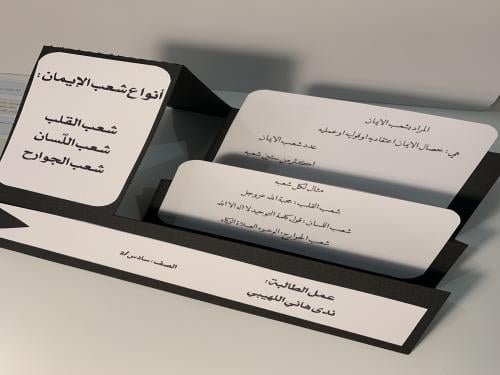 أنواع شعب الإيمان :
شعب القلب
شعب اللّسان
شعب الجوارح
المراد بشعب الايمان
هي : خصال الايمان اعتقاديه او قوليه او عمليه
عدد شعب الايمان
اكثر من ستين شعبه
مثال لكل شعبه
شعب القلب : محبة الله عزوجل
شعب اللسان : قول كلمة التوحيد لا اله الا الله
شعب الجوارح : الوضوء الصلاة الزكاه
الصف : سادس /2
عمل الطالبة :
ندى هاني اللهيبي